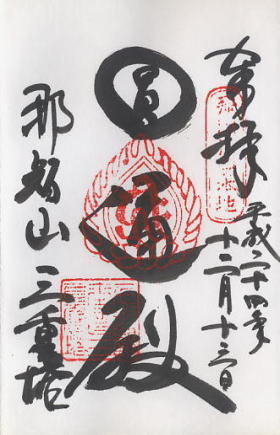 奉拝
平成二十四年
十二月十三日
圓通殿
那智山 三重塔